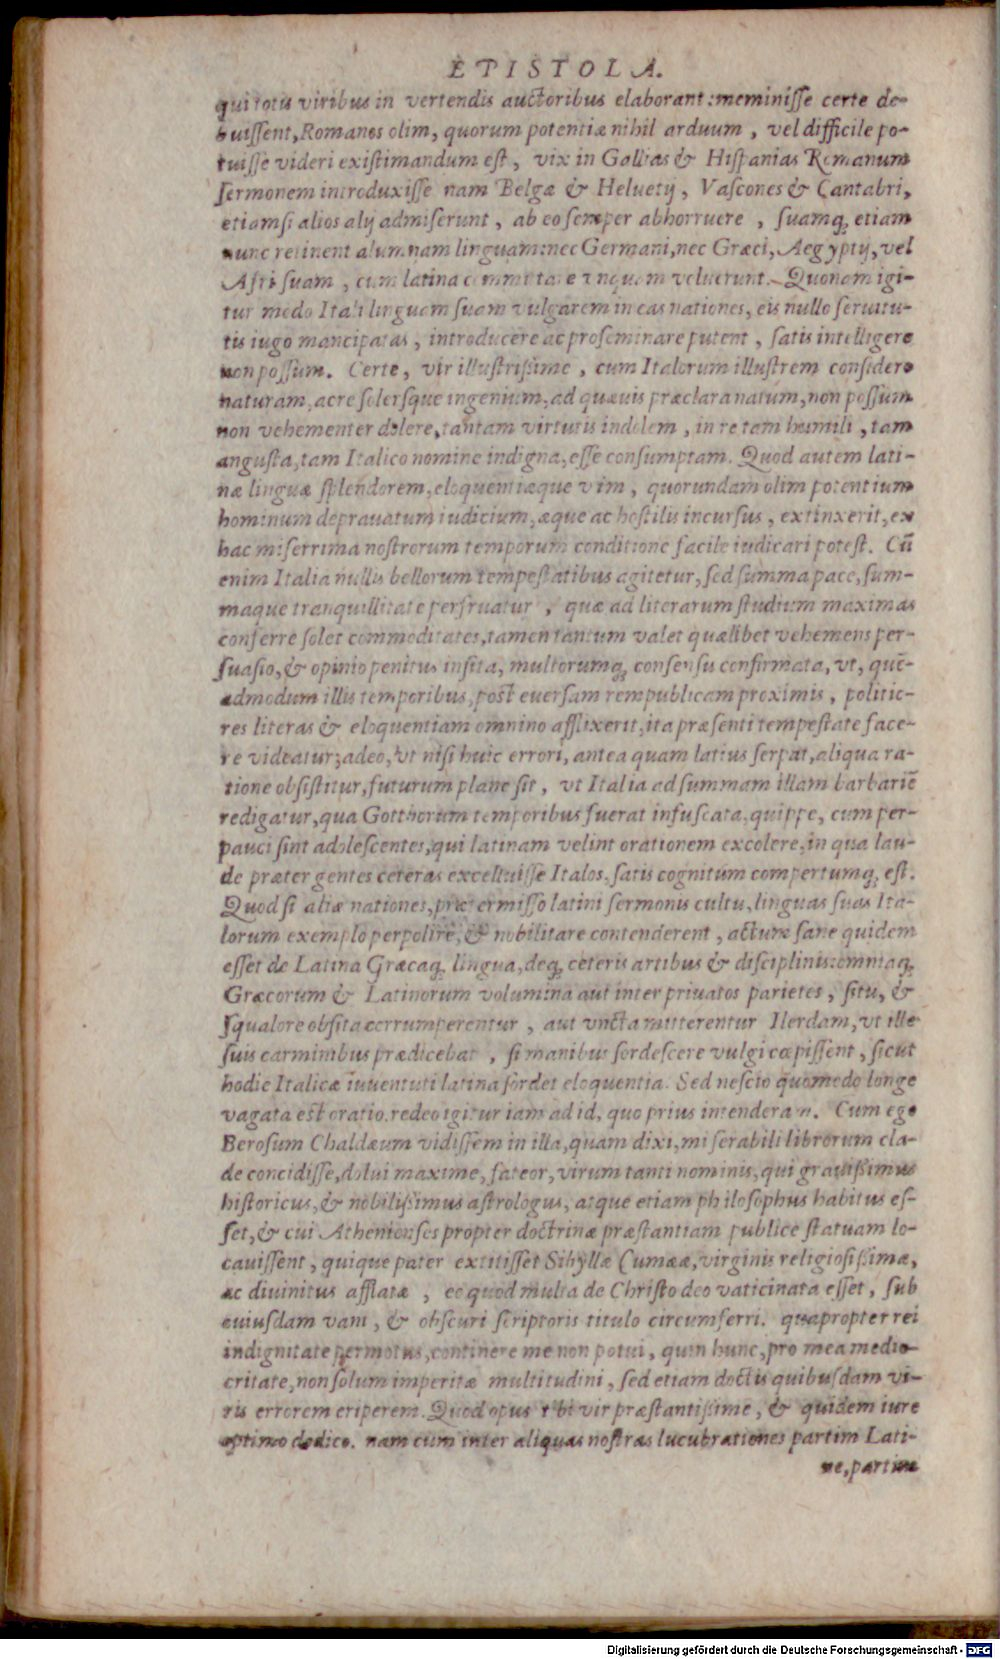 EPISTOLA.
qui totis viribus in vertendis auctoribus elaborant: meminisse certe de-
buissent, Romanos olim, quorum potentiæ nihil arduum, vel difficile po-
tuisse videri existimandum est, vix in Gallias & Hispanias Romanum
sermonem introduxisse nam Belgæ & Heluetij, Vascones & Cantabri,
etiamsi alios alij admiserunt, ab eo semper abhorruere, suamq; etiam
nunc retinent alumnam linguam: nec Germani, nec Græci, Aegyptij, vel
Afri suam, cum latina commutare vnquam voluerunt. Quonam igi-
tur modo Itali linguam suam vulgarem in eas nationes, eis nullo seruitu-
tis iugo mancipatas, introducere ac proseminare putent, satis intelligere
non possum. Certe, vir illustrissime, cum Italorum illustrem considero
naturam, acre solersque ingenium, ad quæuis præclara natum, non possum
non vehementer dolere, tantam virtutis indolem, in re tam humili, tam
angusta, tam Italico nomine indigna, esse consumptam. Quod autem lati-
næ linguæ splendorem, eloquentiæque vim, quorundam olim potentium
hominum deprauatum iudicium, æque ac hostilis incursus, extinxerit, ex
hac miserrima nostrorum temporum conditione facile iudicari potest. Cū
enim Italia nullis bellorum tempestatibus agitetur, sed summa pace, sum-
maque tranquillitate perfruatur, quæ ad literarum studium maximas
conferre solet commoditates, tamen tantum valet quælibet vehemens per-
suasio, & opinio penitus insita, multorumq; consensu confirmata, vt, quē-
admodum illis temporibus, post euersam rempublicam proximis, politio-
res literas & eloquentiam omnino afflixerit, ita præsenti tempestate face-
re videatur; adeo, vt nisi huic errori, antea quam latius serpat, aliqua ra-
tione obsistitur, futurum plane sit, vt Italia ad summam illam barbariē
redigatur, qua Gotthorum temporibus fuerat infuscata, quippe, cum per-
pauci sint adolescentes, qui latinam velint orationem excolere, in qua lau-
de præter gentes ceteras excelluisse Italos, satis cognitum compertumq; est.
Quod si aliæ nationes, prætermisso latini sermonis cultu, linguas suas Ita-
lorum exemplo perpolire, & nobilitare contenderent, actum sane quidem
esset de Latina Græcaq; lingua, deq; ceteris artibus & disciplinis: omniaq;
Græcorum & Latinorum volumina aut inter priuatos parietes, situ, &
squalore obsita corrumperentur, aut vncta mitterentur Ilerdam, vt ille
suis carminibus prædicebat, si manibus sordescere vulgi cœpissent, sicut
hodie Italicæ iuuentuti latina sordet eloquentia. Sed nescio quomodo longe
vagata est oratio. redeo igitur iam ad id, quo prius intenderam. Cum ego
Berosum Chaldæum vidissem in illa, quam dixi, miserabili librorum cla-
de concidisse, dolui maxime, fateor, virum tanti nominis, qui grauissimus
historicus, & nobilissimus astrologus, atque etiam philosophus habitus es-
set, & cui Athenienses propter doctrinæ præstantiam publice statuam lo-
cauissent, quique pater extitisset Sibyllæ Cumææ, virginis religiosissimæ,
ac diuinitus afflatæ, eo quod multa de Christo deo vaticinata esset, sub
cuiusdam vani, & obscuri scriptoris titulo circumferri. quapropter rei
indignitate permotus, continere me non potui, quin hunc, pro mea medio-
critate, non solum imperitæ multitudini, sed etiam doctis quibusdam vi-
ris errorem eriperem. Quod opus tibi vir præstantissime, & quidem iure
optimo dedico. nam cum inter aliquas nostras lucubrationes partim Lati-
ne, partim
Digitalisierung gefördert durch die Deutsche Forschungsgemeinschaft - DFG